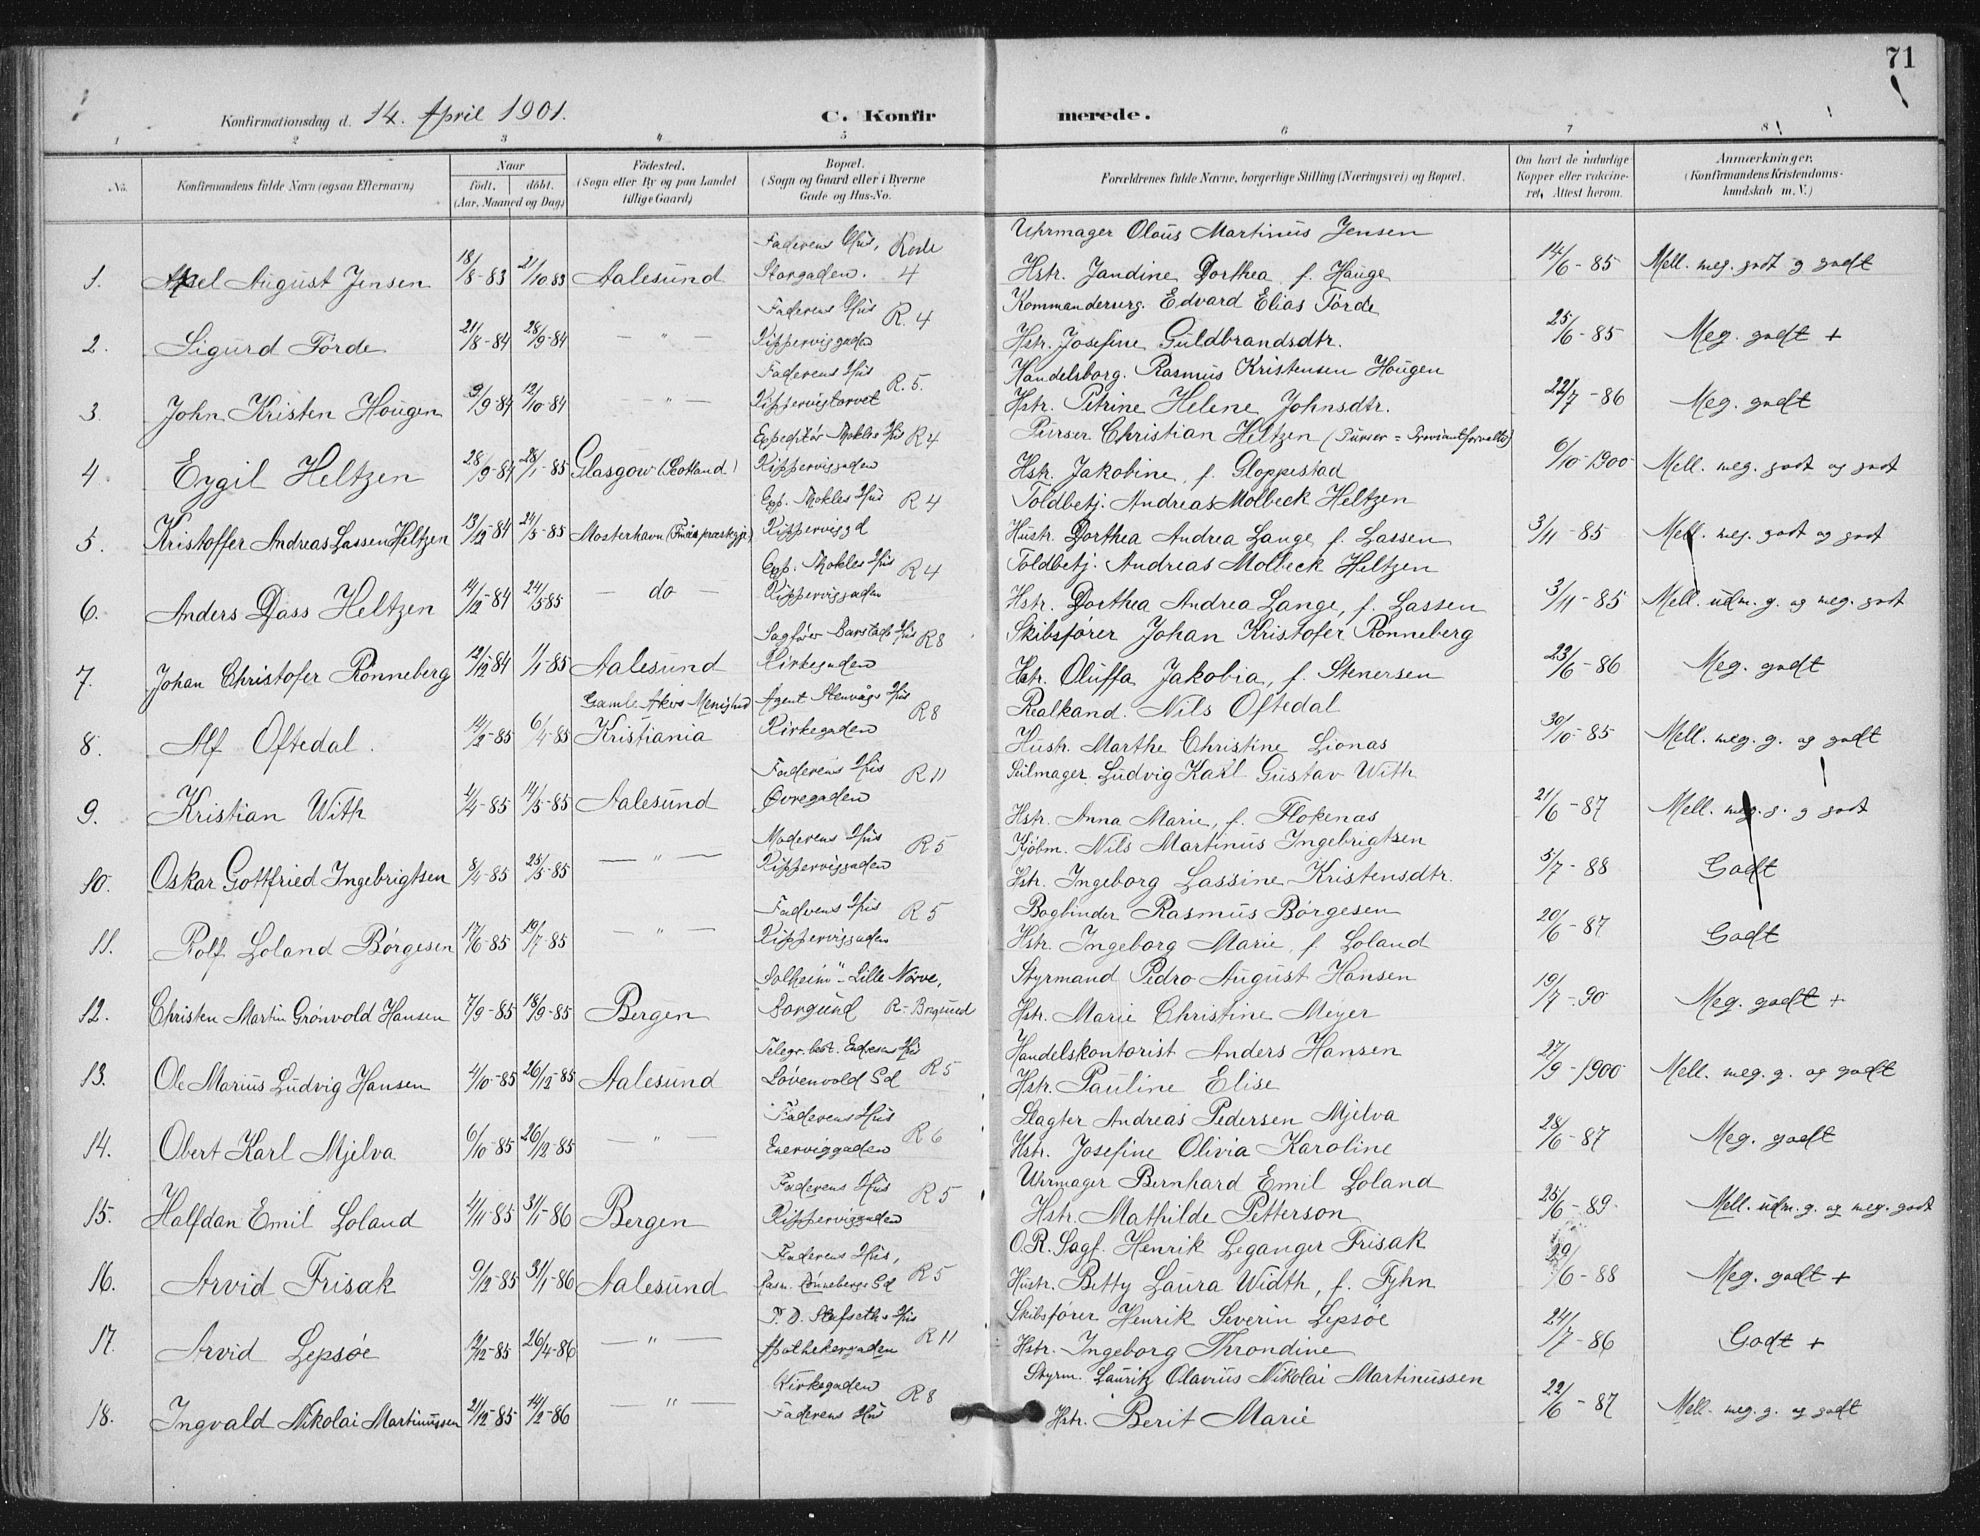 71
Konfirmationsdag d. 14. April 1901.
C. Konfir merede.
1 2 3 " 5 6 7 8
No. Konfirmandens fulde Navn (ogsaa Efternavn) Naar født. døbt. (Aar, Maaned og Dag) Fødested. (Sogn eller By og paa Landet tillige Gaard) Bopæl. (Sogn og Gaard eller i Byerne Gade og Hus-No. Forældrenes fulde Navne, borgerlige Stilling (Næringsvei) og Bopæl. Om havt de naturlige Kopper eller vaccineret, Attest herom. Anmærkninger. (Konfirmandens Kristendomskundskab m. V.)
Faderens Hus, Rode Uhrmager Olaus Martinus Jensen
1. Axel August Jensen 18/8-83 21/10 83 Aalesund Storgaden. 4 Hstr. Jandine Dorthea f. Hauge 14/6-85 Mell. meg. godt g godt
Faderens Hus R. 4 Kommanderserg. Edvard Elias Förde
2. Sigurd Förde 21/8-84 28/9-84 — " — Kippervigaden Hstr. Josefine Guldbrandsdtr. 25/6-85 Meg. godt +
Faderens Hus R. 5. Handelsborg. Rasmus Kristensen Hougen
3. John Kristen Hougen 9/9-84 12/10-84 — " — Kippervigtorvet Hstr. Petrine Helene Johnsdtr. 22/7-86 Meg. godt
Expeditör Mokles Hus R 4 Purser Christian Heltzen (Purser = Proviantforvalter)
4. Eygil Heltzen 28/9-84 28/1-85 Glasgow (Scotland.) Kippervigaden Hstr. Jakobine, f. Gloppestad 6/10-1900 Mell. meg. godt og godt
Exp. Mokles Hus R 4 Toldbetj. Andreas Molbeck Heltzen
5. Kristoffer Andreas Lassen Heltzen 13/12-84 24/5-85 Mosterhavn Kippervigd Hustr. Dorthea Andrea Lange f. Lassen 3/11-85 Mell. meg. godt og godt
Exp. Mokles Hus R 4 Toldbetj. Andreas Molbeck Heltzen
6. Anders Dass Heltzen 14/12-84 24/5 85 — do — Kippervigaden Hstr. Dorthea Andrea Lange, f. Lassen 3/11-85 Mell. udm. g. og meg. godt
Sagförer Barstads Hus R 8 Skibsförer Johan Kristofer Rönneberg
7. Johan Christofer Rönneberg 12/12 84 1/1-85 Aalesund Kirkegaden Hstr. Oluffa Jakobia, f. Stenersen 23/6-86 Meg. godt
Gamle Akers Menighed Agent Stenvågs Hus R 8 Realkand. Nils Oftedal
8. Alf Oftedal. 14/2-85 6/4-85 Kristiania Kirkegaden Hustr. Marthe Christine Lionas 30/10-85 Mell. meg. g. og godt
Faderens Hus R 11 Seilmager Ludvig Karl Gustav With
9. Kristian With 2/4-85 14/5-85 Aalesund Övregaden Hstr. Anna Marie, f. Flokenæs 21/6-87 Mell. meg. g. g godt
Moderens Hus R 5 Kjöbm. Nils Martinus Ingebrigtsen
10. Oskar Gottfried Ingebrigtsen 8/4-85 25/5-85 — " — Kippervigaden Hstr. Ingeborg Lassine Kristensdtr. 5/7-88 Godt
Faderens Hus R 5 Bogbinder Rasmus Börgesen
11. Rolf Loland Börgesen 17/6-85 19/7-85 — " — Kippervigaden Hstr. Ingeborg Marie f. Loland 20/6-87 Godt
"Solheim" Lille Nörve, Styrmand Pedro August Hansen
12. Christen Martin Grönvold Hansen 7/9-85 18/9-85 Bergen Borgund R-Borgund Hstr. Marie Christine Meyer 19/7-90 Meg. godt +
Telegr. best. Endresens Hus R 5 Handelskontorist Anders Hansen
13. Ole Marius Ludvig Hansen 4/10-85 26/12-85 Aalesund Lövenvold Gd Hstr. Pauline Elise 27/9-1900 Mell. meg. g. og godt
Faderens Hus R 6 Slagter Andreas Pedersen Mjelva
14. Obert Karl Mjelva 6/10-85 26/12-85 — " — Enerviggaden Hstr. Josefine Olivia Karoline 28/6-87 Meg. godt
Faderens Hus R 5 Uhrmager Bernhard Emil Loland
15. Halfdan Emil Loland 4/11-85 31/1-86 Bergen Kippervigaden Hstr. Mathilde Petterson 25/6-89 Mell. udm. g. og meg. godt
Faderens Hus, R 5 O.R. Sagf. Henrik Leganger Frisak
16. Arvid Frisak 9/12-85 31/1-86 Aalesund Rasm. Rönnebergs Gd Hustr. Betty Laura Width, f. Fyhn 29/6-88 Meg. godt +
P. D. Stafseths Hus R 11 Skibsförer Henrik Severin Lepsöe
17. Arvid Lepsöe 12/12-85 26/4-86 — " — Apothekergaden Hstr. Ingeborg Throndine 24/7-86 Godt +
Kirkegaden R 8 Styrm. Lauritz Olavius Nikolai Martinussen
18. Ingvald Nikolai Martinussen 21/12-85 14/2-86 — " — Faderens Hus Hstr. Berit Marie 22/6-87 Mell. meg. g. og godt